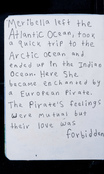 Meribella left the
Atlantic Ocean, took
a quick trip to the
Arctic Ocean and
ended up in the Indian
Ocean. Here She
became enchanted by
a European Pirate.
The Pirate's feelings
were mutual but
their love was
forbidden